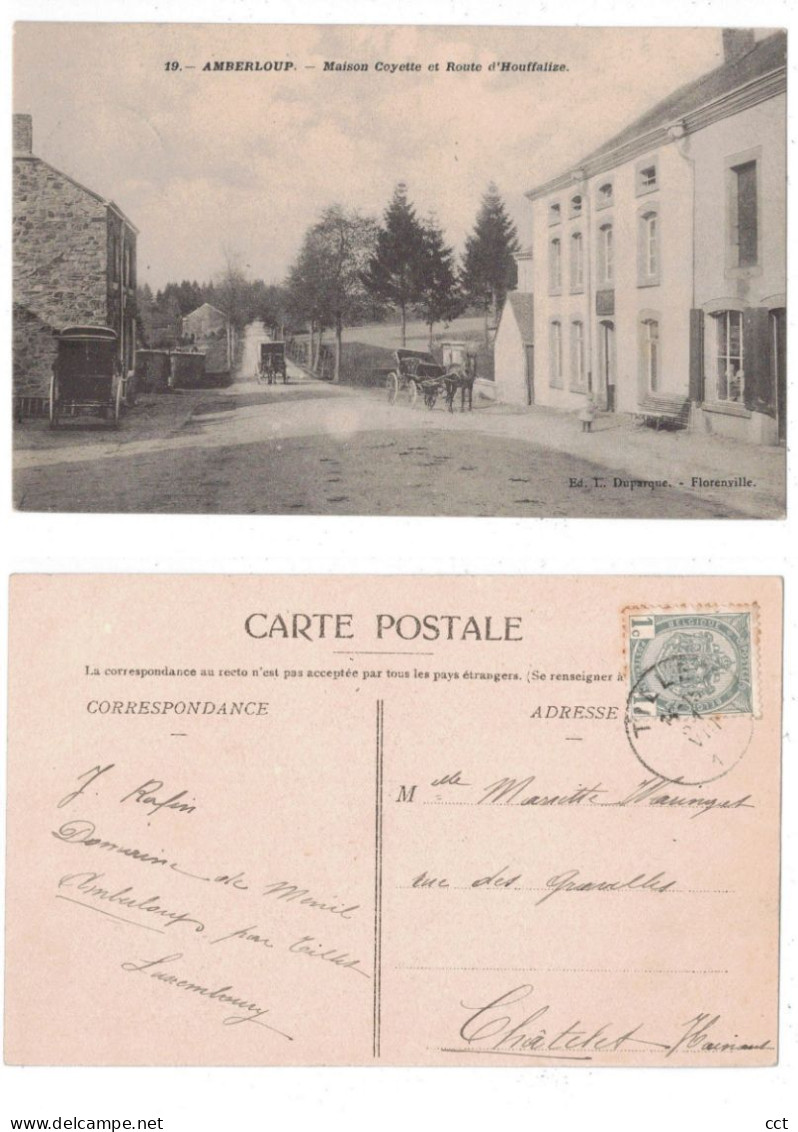 19. — AMBERLOUP. — Maison Coyette et Route d'Houffalize.
Ed. L. Duparque. - Florenville.
CARTE POSTALE
La correspondance au recto n'est pas acceptée par tous les pays étrangers. (Se renseigner à
CORRESPONDANCE
ADRESSE
BELGIQUE
1c
J. Rafin
Domaine de Menil
Amberloup par Tillet
Luxembourg
Mlle Mariette
rue des Gravelles
Châtelet Hainaut
delcampe.net
cct